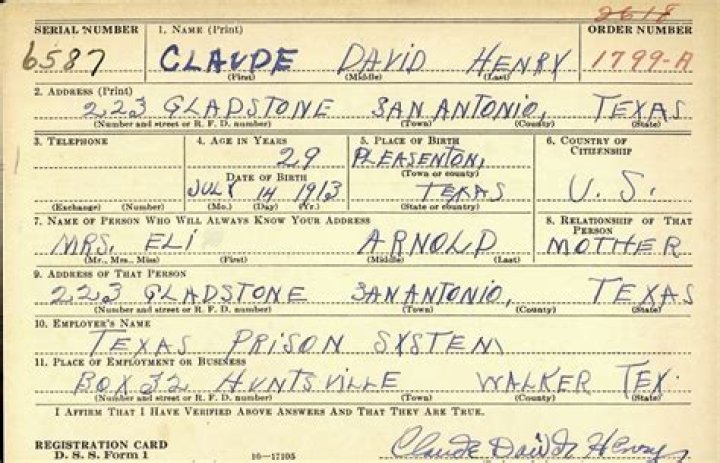 2618
SERIAL NUMBER 1. NAME (Print) ORDER NUMBER
6587 CLAUDE DAVID HENRY 1799-A
(First) (Middle) (Last)
2. ADDRESS (Print)
223 GLADSTONE SAN ANTONIO, TEXAS
(Number and street or R. F. D. number) (Town) (County) (State)
3. TELEPHONE 4. AGE IN YEARS 5. PLACE OF BIRTH 6. COUNTRY OF CITIZENSHIP
29 PLEASENTON,
DATE OF BIRTH (Town or county)
JULY 14 1913 TEXAS U.S.
(Exchange) (Number) (Mo.) (Day) (Yr.) (State or country)
7. NAME OF PERSON WHO WILL ALWAYS KNOW YOUR ADDRESS 8. RELATIONSHIP OF THAT PERSON
MRS. ELI ARNOLD MOTHER
(Mr., Mrs., Miss) (First) (Middle) (Last)
9. ADDRESS OF THAT PERSON
223 GLADSTONE SAN ANTONIO, TEXAS
(Number and street or R. F. D. number) (Town) (County) (State)
10. EMPLOYER'S NAME
TEXAS PRISON SYSTEM
11. PLACE OF EMPLOYMENT OR BUSINESS
BOX 32 HUNTSVILLE WALKER TEX.
(Number and street or R. F. D. number) (Town) (County) (State)
I AFFIRM THAT I HAVE VERIFIED ABOVE ANSWERS AND THAT THEY ARE TRUE.
REGISTRATION CARD
D. S. S. Form 1 16—17105 Claude David Henry